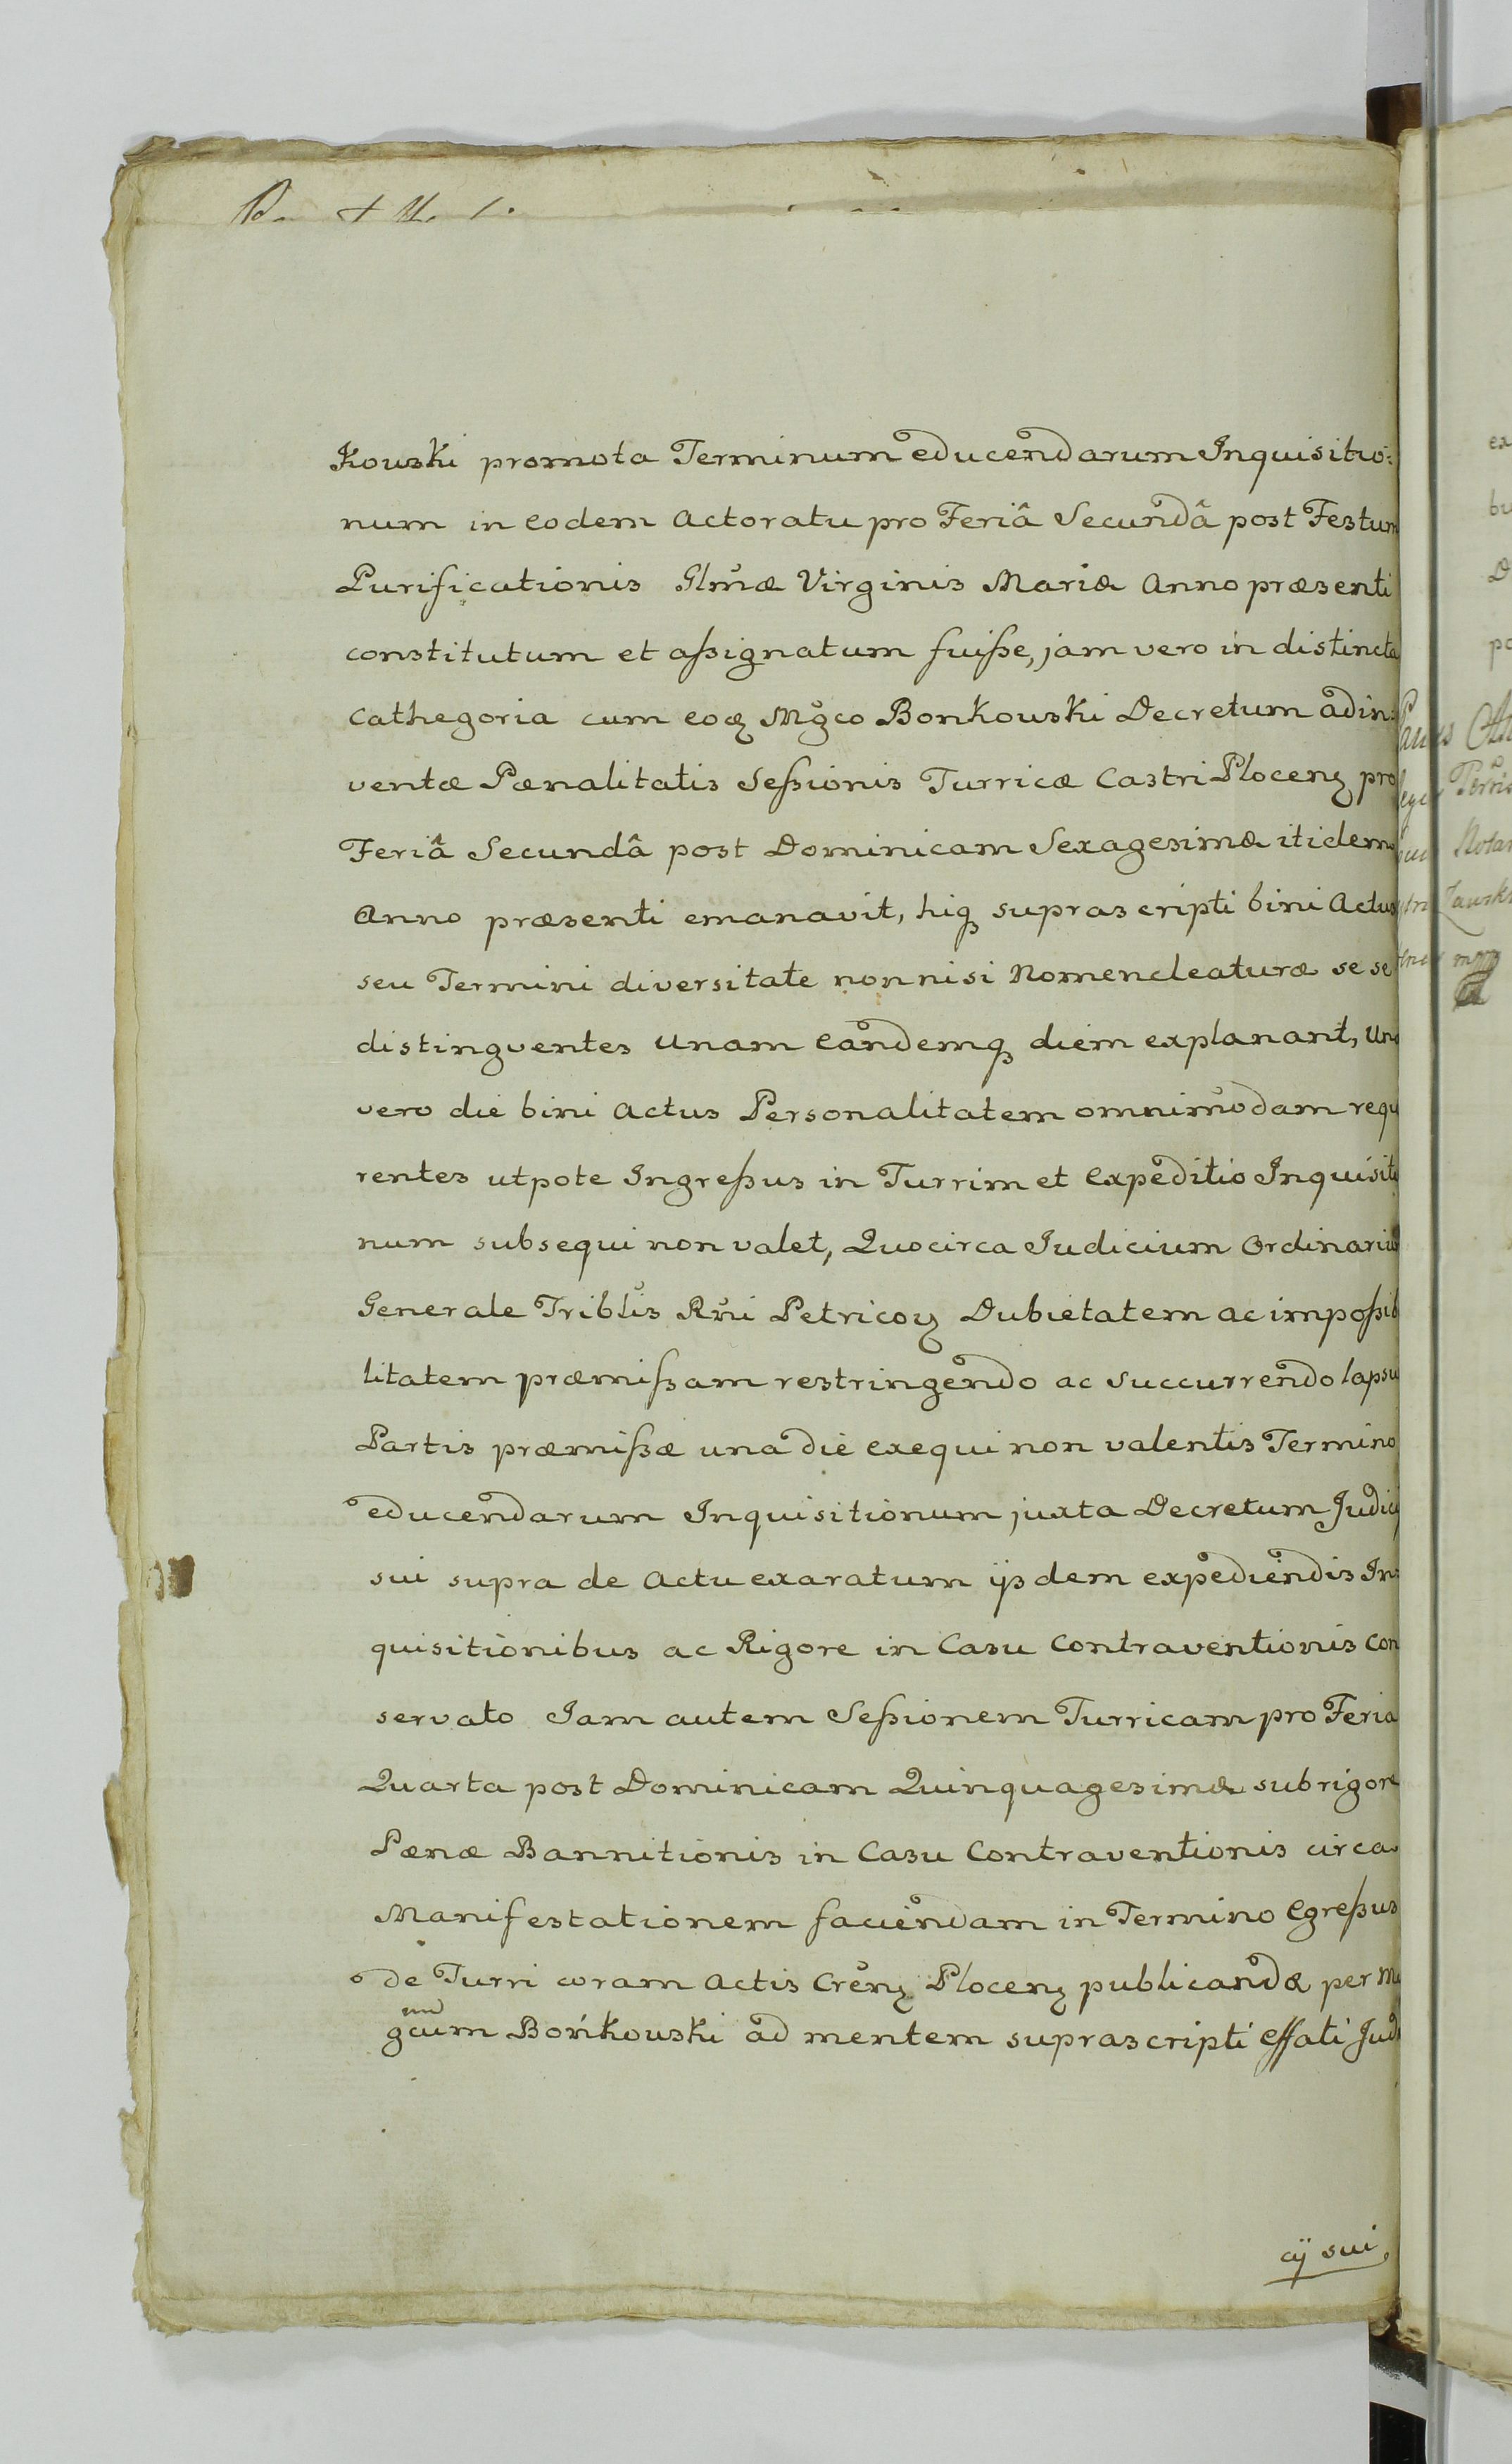 kowski promota Terminum educendarum Inquisitio:
num in eodem Actoratu pro Feriâ Secundâ post Festum
Purificationis Glmæ Virginis Mariæ Anno præsenti
constitutum et aßignatum fuiße, jam vero in distincta
Cathegoria cum eoq Mgco Bonkowski Decretum adin:
ventæ Pænalitatis Seßionis Turricæ Castri Plocenȝ pro
Feriâ Secundâ post Dominicam Sexagesimæ itidem
Anno præsenti emanavit, hiqȝ suprascripti bini Actus
seu Termini diversitate nonnisi Nomencleaturæ se se
distingventes Unam Eandemqȝ diem explanant, Uno
vero die bini Actus Personalitatem omnimodam requ
rentes utpote Ingreßus in Turrim et Expeditio Inquisitio
num subsequi non valet, Quocirca Judicium Ordinarium
Generale Triblis Rni Petricoȝ Dubietatem ac impoßib
litatem præmißam restringendo ac Succurrendo lapsu
Partis præmißæ una die exequi non valentis Termino
educendarum Inquisitionum juxta Decretum Judicij
sui supra de Actu exaratum ijsdem expediendis In:
quisitionibus ac Rigore in Casu Contraventionis con
servato Jam autem Seßionem Turricam pro Feria
Quarta post Dominicam Quinquagesimæ sub rigore
Pænæ Bannitionis in Casu Contraventionis circa
Manifestationem faciendam in Termino Egreßus
de Turri coram Actis Crenȝ Plocenȝ publicandæ per M
gcum Bońkowski ad mentem suprascripti effati Judi
cÿ sui